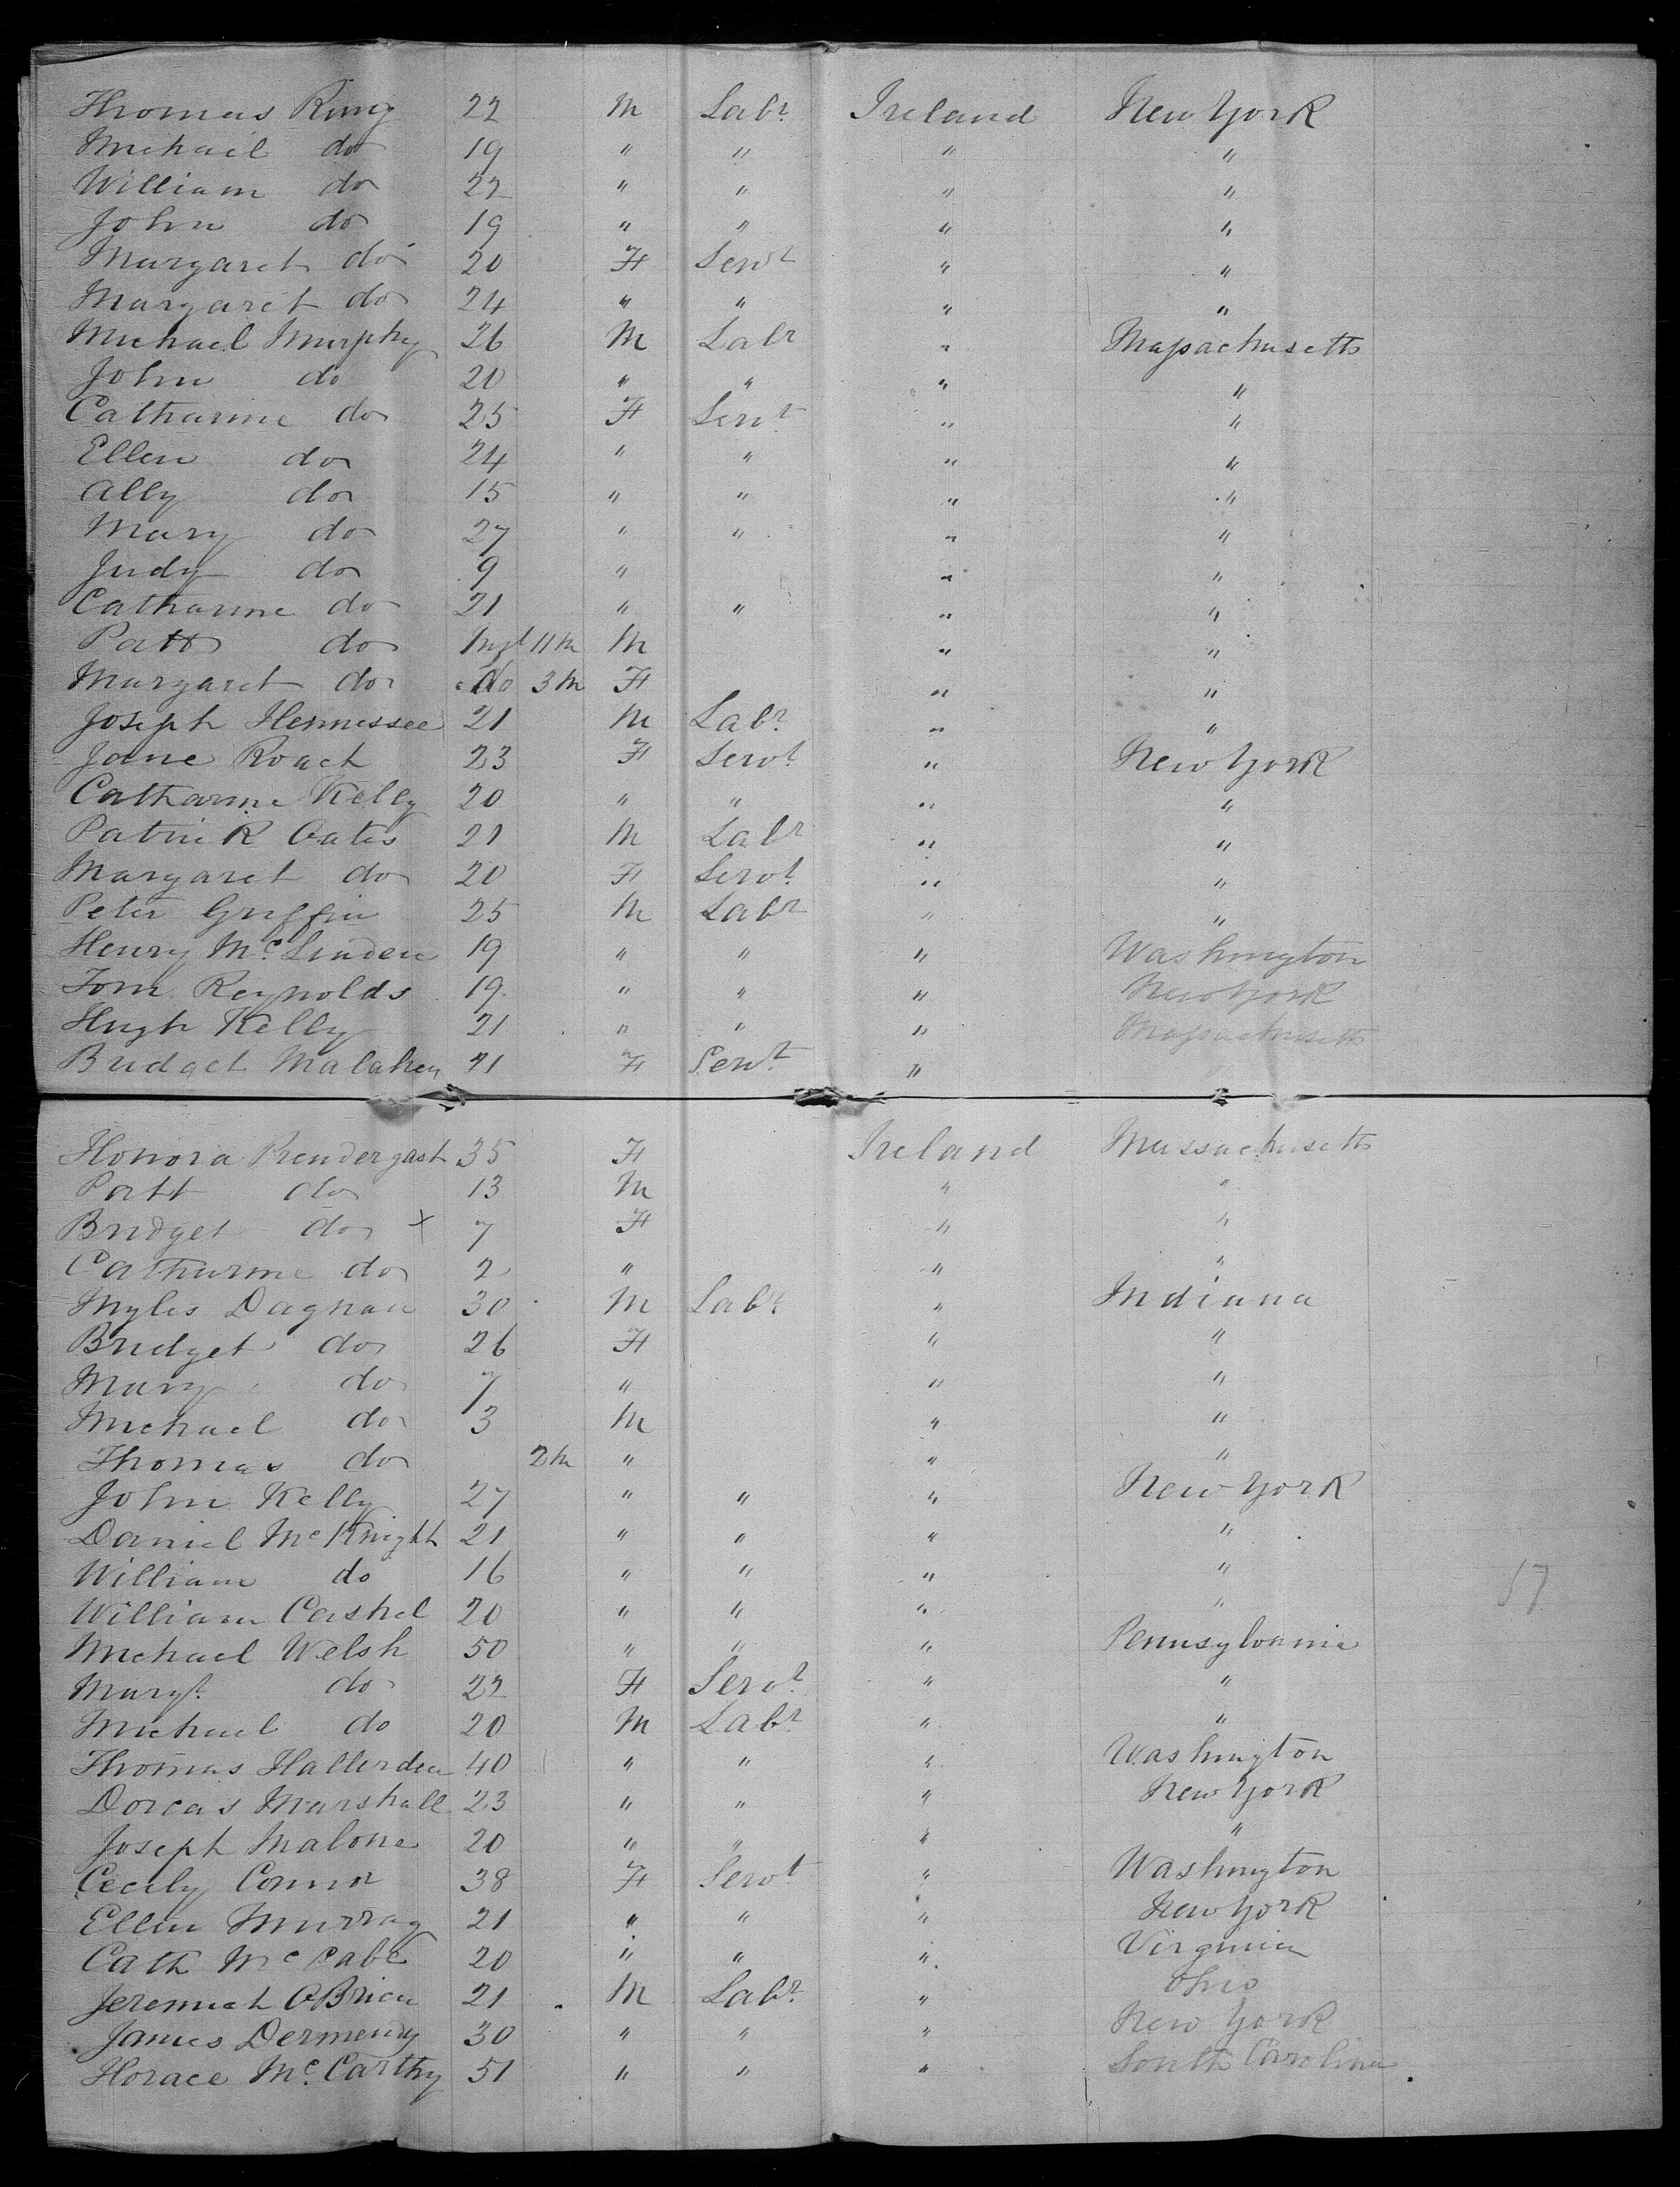 Thomas Ring 22 M Labr Ireland New York
Michael do 19 " " " "
William do 22 " " " "
John do 19 " " " "
Margaret do 20 F Servt " "
Margaret do 24 " " " "
Michael Murphy 26 M Labr " Massachusetts
John do 20 " " " "
Catharine do 25 F Servt " "
Ellen do 24 " " " "
Ally do 15 " " " "
Mary do 27 " " " "
Judy do 9 " " "
Catharine do 21 " " " "
Patt do Inft 11 M M " "
Margaret do do 3 M F " "
Joseph Hennessee 21 M Labr " "
Jane Roach 23 F Servt " New York
Catharine Kelly 20 " " " "
Patrick Oates 21 M Labr " "
Margaret do 20 F Servt " "
Peter Griffin 25 M Labr " "
Henry Mc Linden 19 " " " Washington
Tom Reynolds 19 " " " New York
Hugh Kelly 21 " " " Massachusetts
Bridget 21 F Servt "
Honora Prendergast 35 F Ireland Massachusetts
Patt do 13 M " "
Bridget do x 7 F " "
Catharine do 2 " " "
Myles Dagnan 30 M Labr " Indiana
Bridget do 26 F " "
Mary do 7 " " "
Michael do 3 M " "
Thomas do 2 M " " "
John Kelly 27 " " " New York
Daniel McKnight 21 " " " "
William do 16 " " " "
William Cashel 20 " " " "
Michael Welsh 50 " " " Pennsylvania
Margt do 22 F Servt " "
Michael do 20 M Labr " "
Thomas Halferden 40 " " " Washington
Dorcas Marshall 23 " " " New York
Joseph Malone 20 " " " "
Cecily Connor 38 F Servt " Washington
Ellen Murray 21 " " " New York
Cath McCabe 20 " " " Virginia
Jeremiah OBrien 21 M Labr " Ohio
James Dermendy 30 " " " New York
Horace Mc Carthy 51 " " " South Carolina